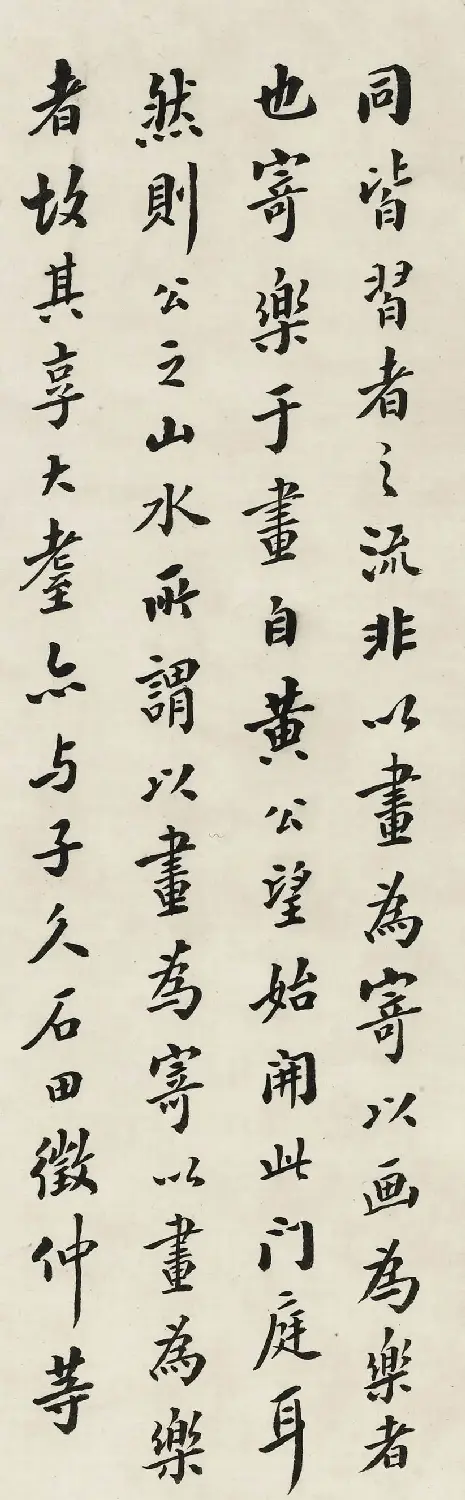 同皆習者之流非以畫為寄以画為樂者
也寄樂于畫自黃公望始開此门庭耳
然則公之山水所謂以畫為寄以畫為樂
者故其享大耋亦与子久石田徵仲等